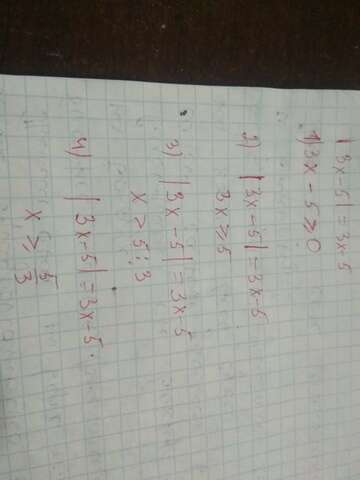 |3x-5|=3x-5
1) 3x-5⩾0
2) |3x-5|=3x-5
3x⩾5
3) |3x-5|=3x-5
x>5:3
4) |3x-5|=3x-5.
x⩾5/3